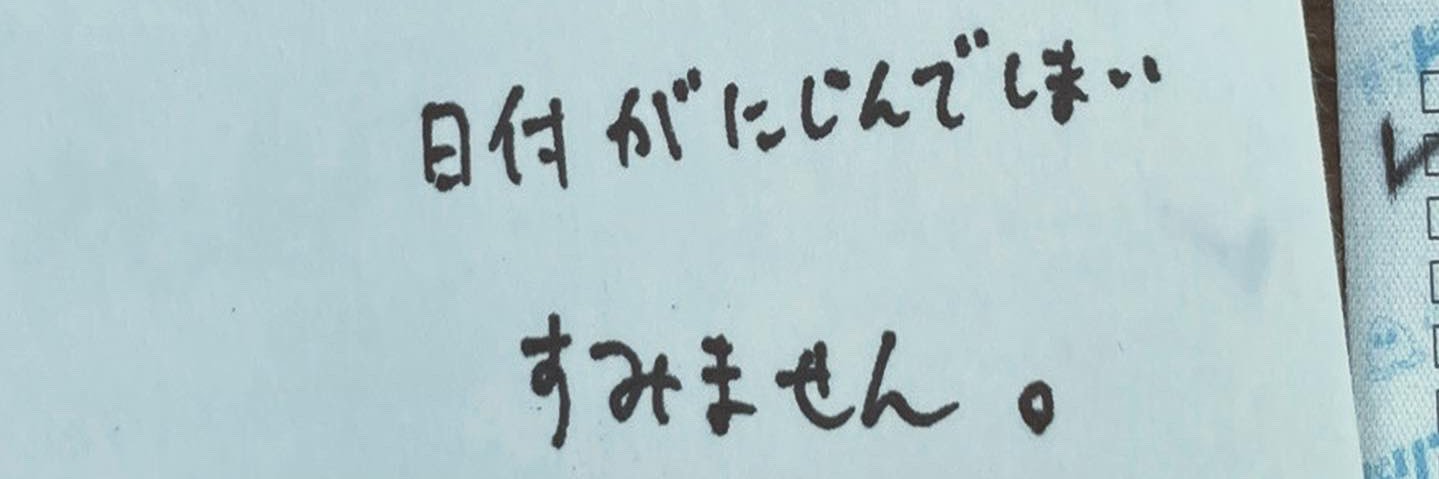 日付がにじんでしまい
すみません。